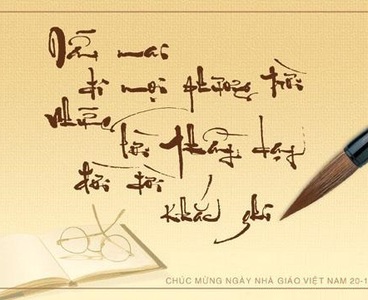 Dẫu mai
đi mọi phương trời
những
lời thầy dạy
đời đời
khắc ghi
CHÚC MỪNG NGÀY NHÀ GIÁO VIỆT NAM 20-1